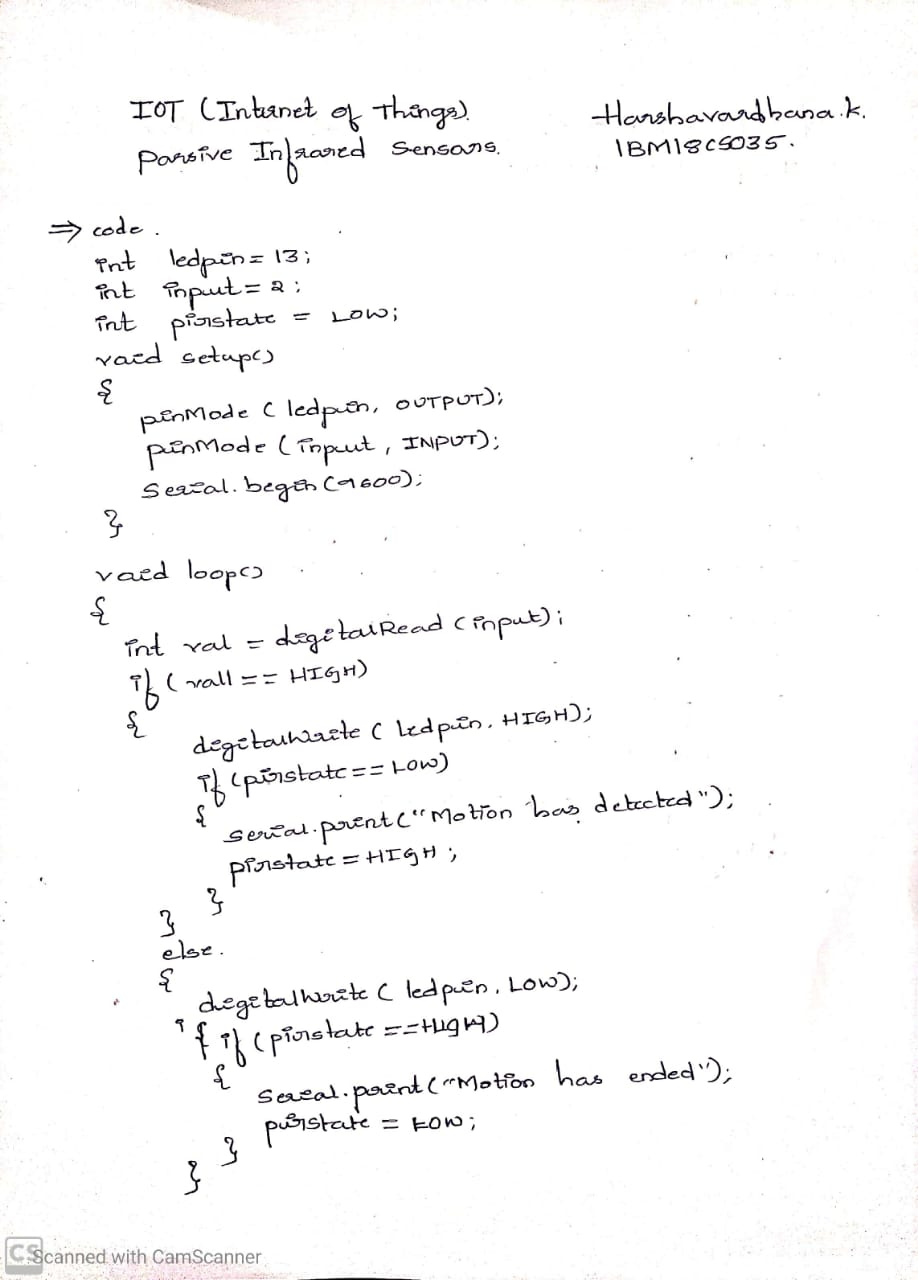 IOT (Internet of Things).
Harshavardhana.k.
Passive Infrared Sensors.
1BM18CS035.
⇒ code.
int ledpin = 13;
int input = 2;
int pirstate = LOW;
void setup()
{
pinMode ( ledpin, OUTPUT);
pinMode (input, INPUT);
Serial.begin (9600);
}
void loop()
{
int val = digitalRead (input);
if (vall == HIGH)
{
digitalWrite ( ledpin, HIGH);
if (pirstate == LOW)
{
serial.print ("Motion has detected");
pirstate = HIGH;
}
}
else.
{
digitalWrite ( ledpin, LOW);
if (pirstate == HIGH)
{
Serial.print ("Motion has ended");
pirstate = LOW;
}
}
CS Scanned with CamScanner